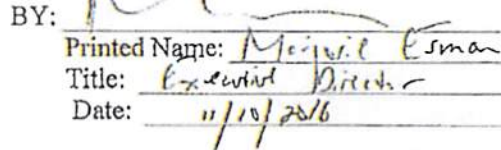 BY:
Printed Name: Marjorie Esman
Title: Executive Director
Date: 11/10/2016